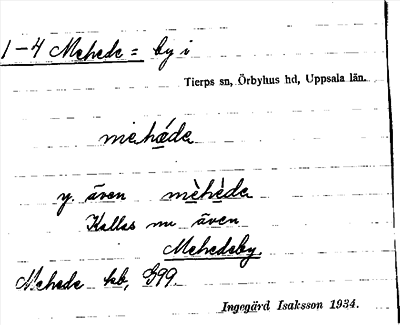 1-4 Mehede = by i
Tierps sn, Örbyhus hd, Uppsala län.
mehǽde
y. även mèhède
Kallas nu även
Mehedeby.
Mehede kb, G99.
Ingegärd Isaksson 1934.